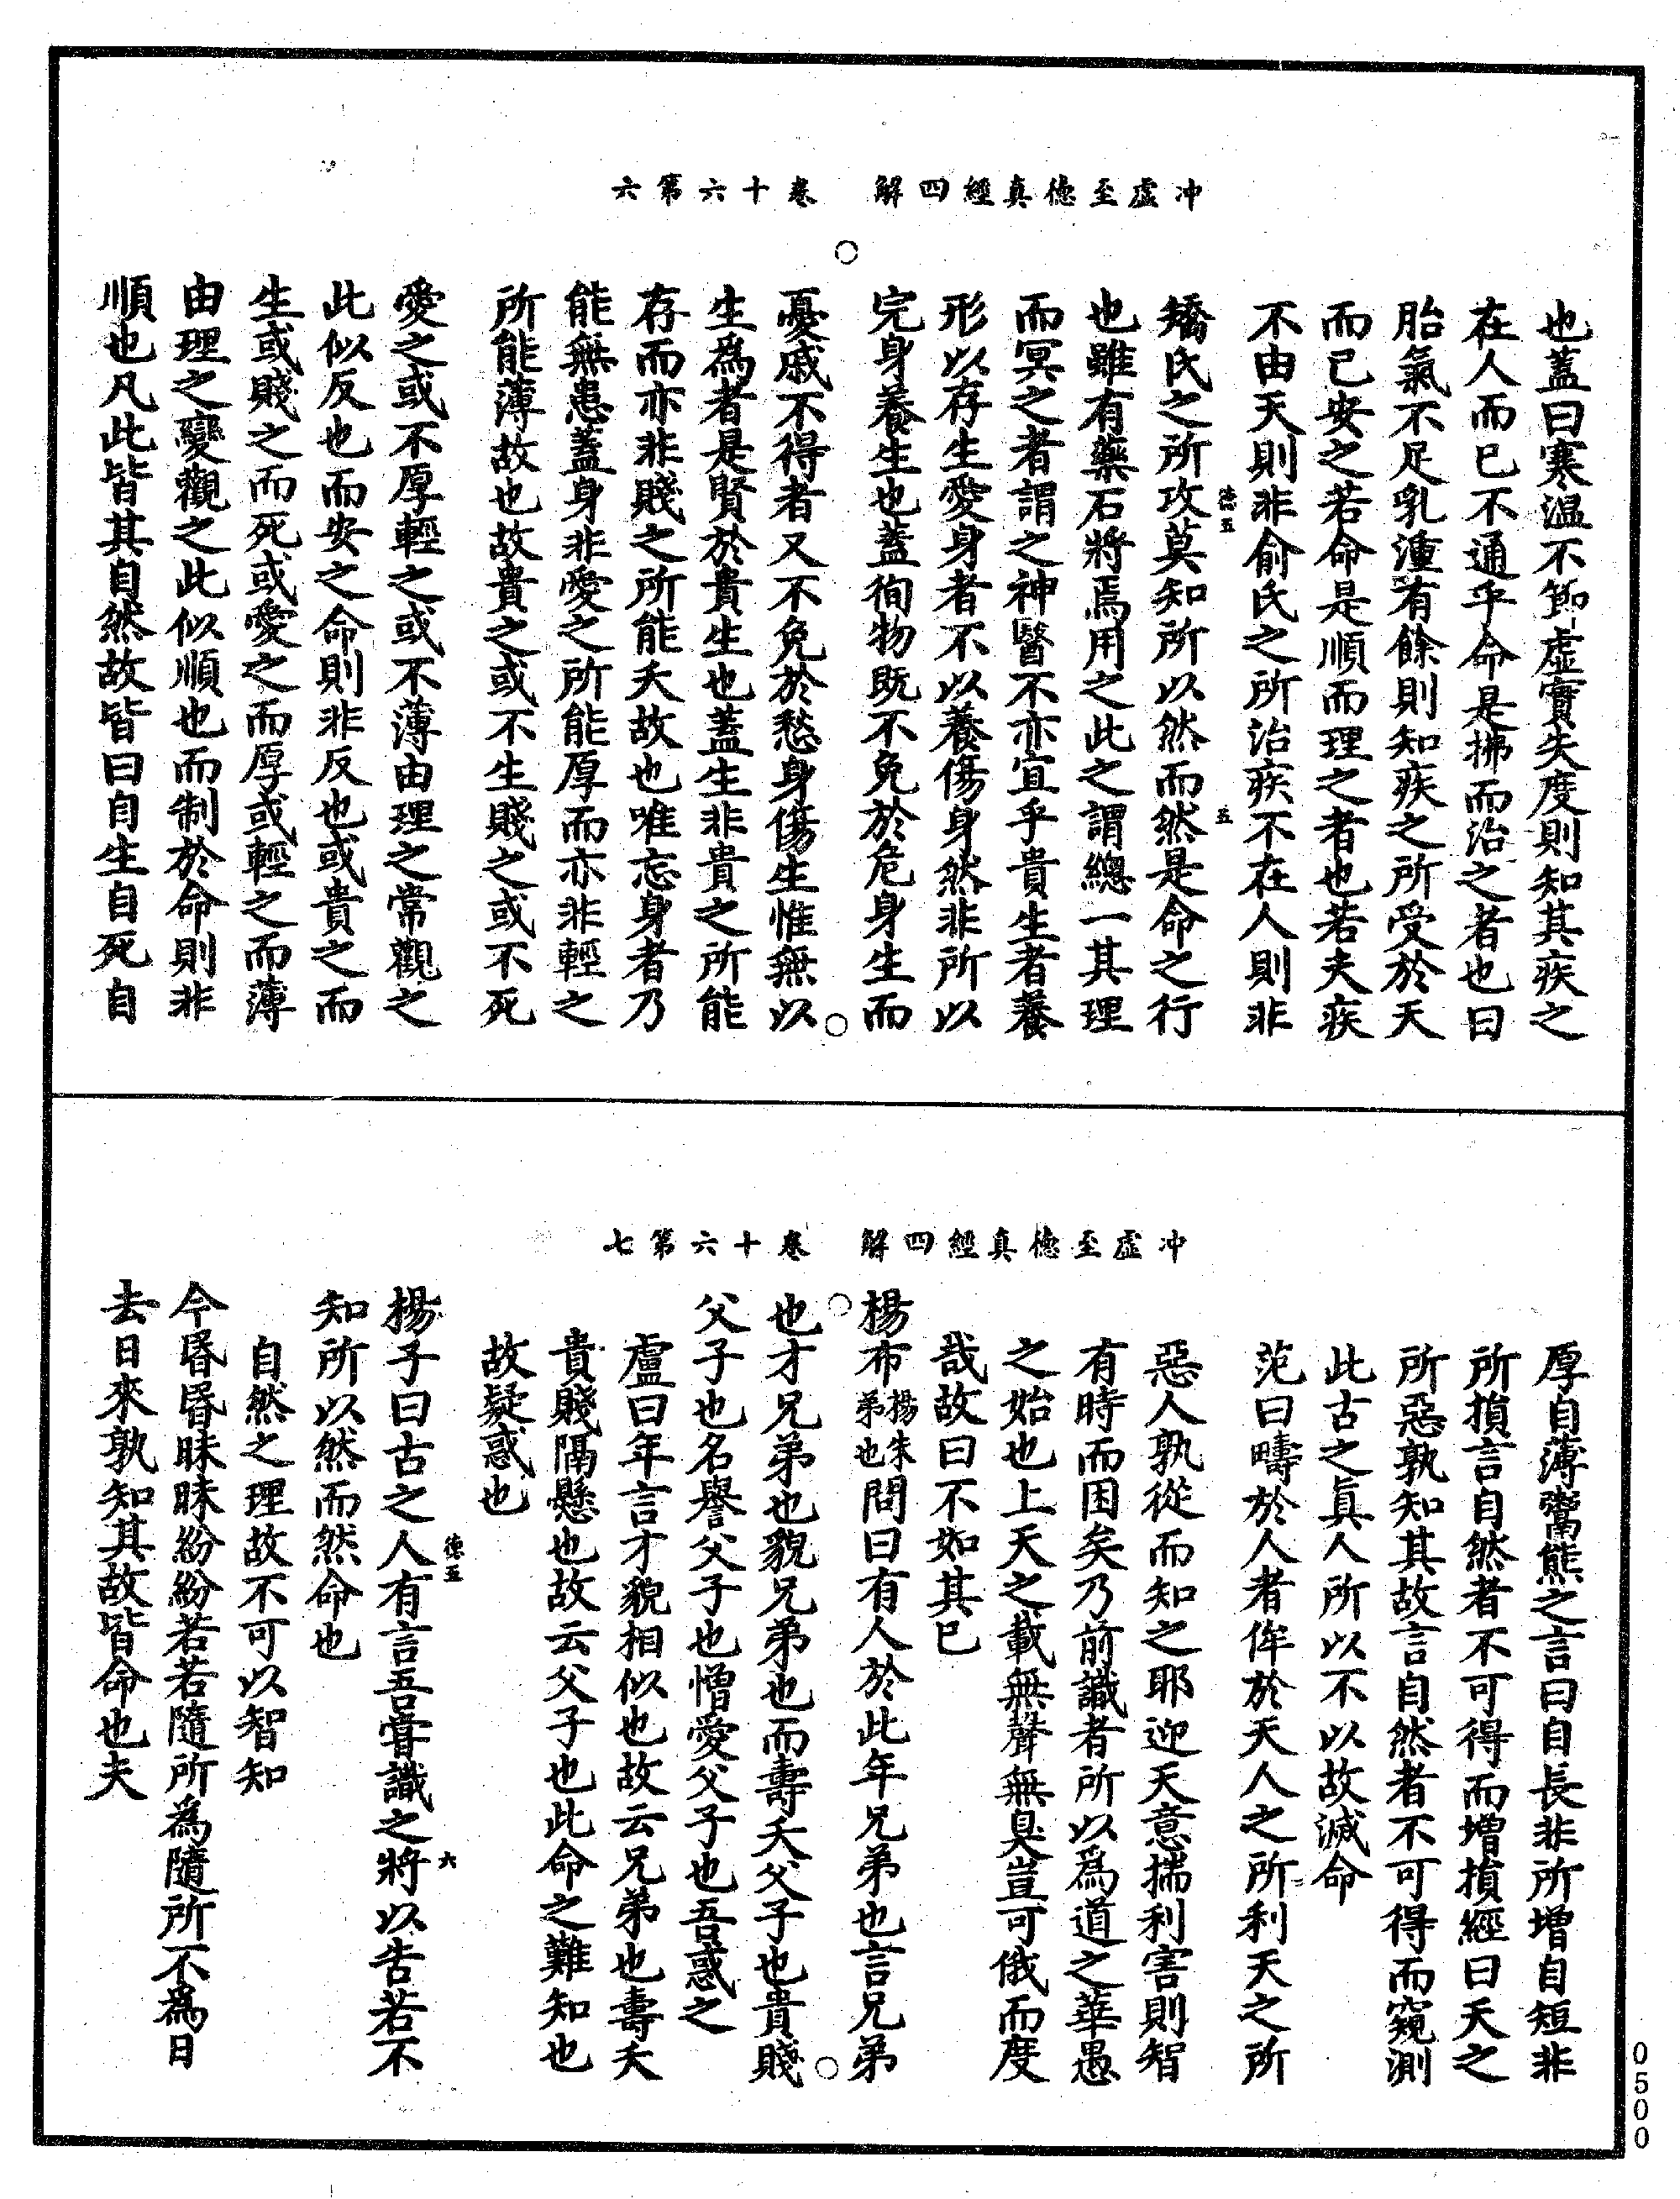 冲虛至德真經四解　卷十六第六
也蓋曰寒溫不節虛實失度則知其疾之
在人而已不通乎命是拂而治之者也曰
胎氣不足乳湩有餘則知疾之所受於天
而已安之若命是順而理之者也若夫疾
不由天則非俞氏之所治疾不在人則非
矯氏之所攻莫知所以然而然是命之行
也雖有藥石將焉用之此之謂總一其理
而冥之者謂之神醫不亦宜乎貴生者養
形以存生愛身者不以養傷身然非所以
完身養生也蓋徇物既不免於危身生而
憂戚不得者又不免於愁身傷生惟無以
生爲者是賢於貴生也蓋生非貴之所能
存而亦非賤之所能夭故也唯忘身者乃
能無患蓋身非愛之所能厚而亦非輕之
所能薄故也故貴之或不生賤之或不死
愛之或不厚輕之或不薄由理之常觀之
此似反也而安之命則非反也或貴之而
生或賤之而死或愛之而厚或輕之而薄
由理之變觀之此似順也而制於命則非
順也凡此皆其自然故皆曰自生自死自
德五
五
冲虛至德真經四解　卷十六第七
厚自薄鬻熊之言曰自長非所增自短非
所損言自然者不可得而增損經曰天之
所惡孰知其故言自然者不可得而窺測
此古之真人所以不以故滅命
范曰疇於人者侔於天人之所利天之所
惡人孰從而知之耶迎天意揣利害則智
有時而困矣乃前識者所以爲道之華愚
之始也上天之載無聲無臭豈可俄而度
哉故曰不如其已
楊布楊朱弟也問曰有人於此年兄弟也言兄弟
也才兄弟也貌兄弟也而壽夭父子也貴賤
父子也名譽父子也憎愛父子也吾惑之
盧曰年言才貌相似也故云兄弟也壽夭
貴賤隔懸也故云父子也此命之難知也
故疑惑也
楊子曰古之人有言吾嘗識之將以告若不
知所以然而然命也
自然之理故不可以智知
今昏昏昧昧紛紛若若隨所為隨所不為日
去日來孰知其故皆命也夫
德五
六
0500